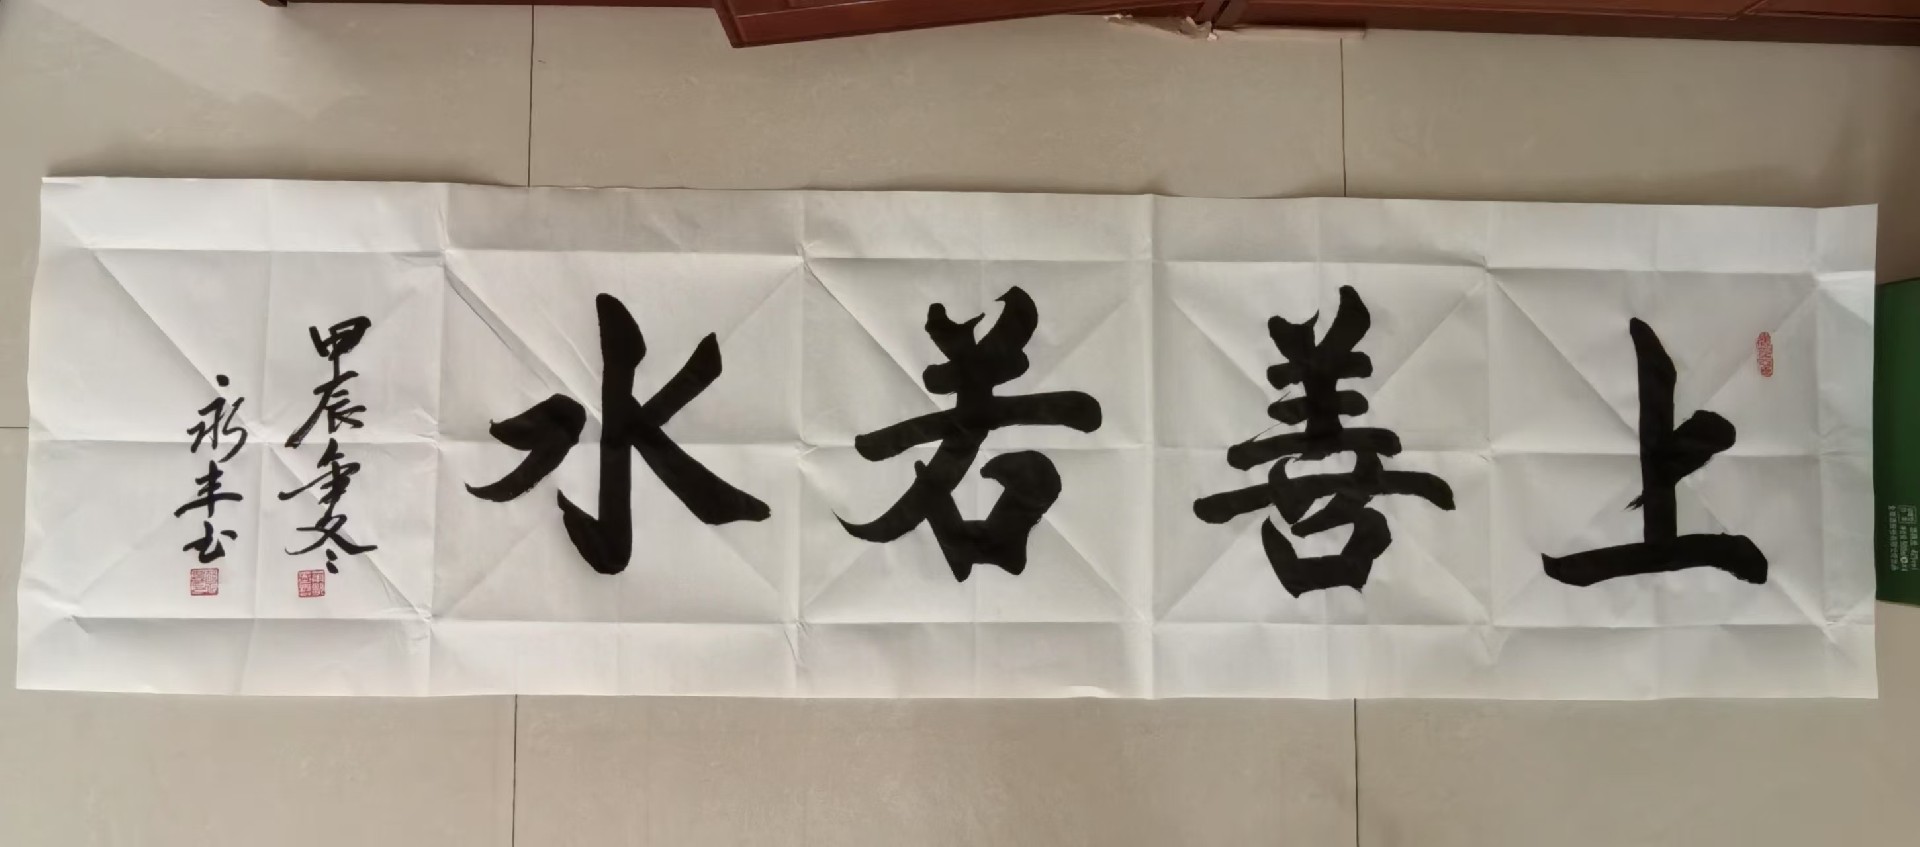 上善若水
甲辰年冬
永丰书